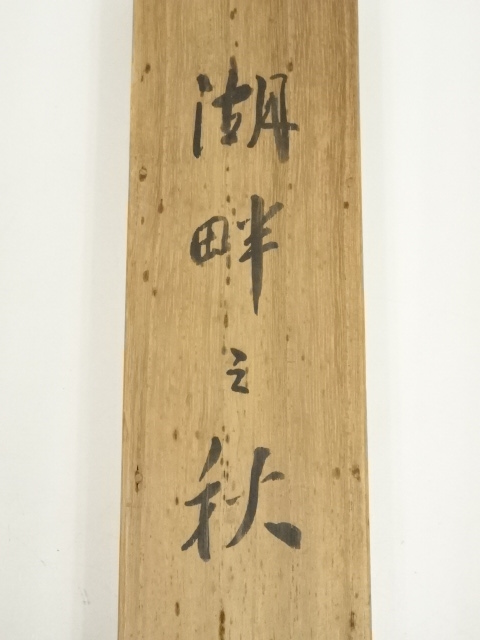 湖畔之秋